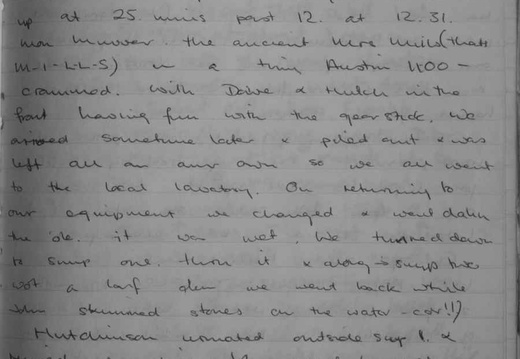 up at 25 mins past 12. at 12.31.
the ancient Mrs Mills (thats
M-I-L-L-S) in a tiny Austin 1100 -
crammed. With Dave & Hutch in the
front having fun with the gear stick. We
arrived sometime later & piled out & was
left all on our own so we all went
to the local lavatory. On returning to
our equipment we changed & went down
the 'ole. it was wet. We turned down
to sump one. thro it & along → sump two
wot a larf then we went back while
John skimmed stones on the water - cor!!)
Hutchinson urinated outside sump 1. &